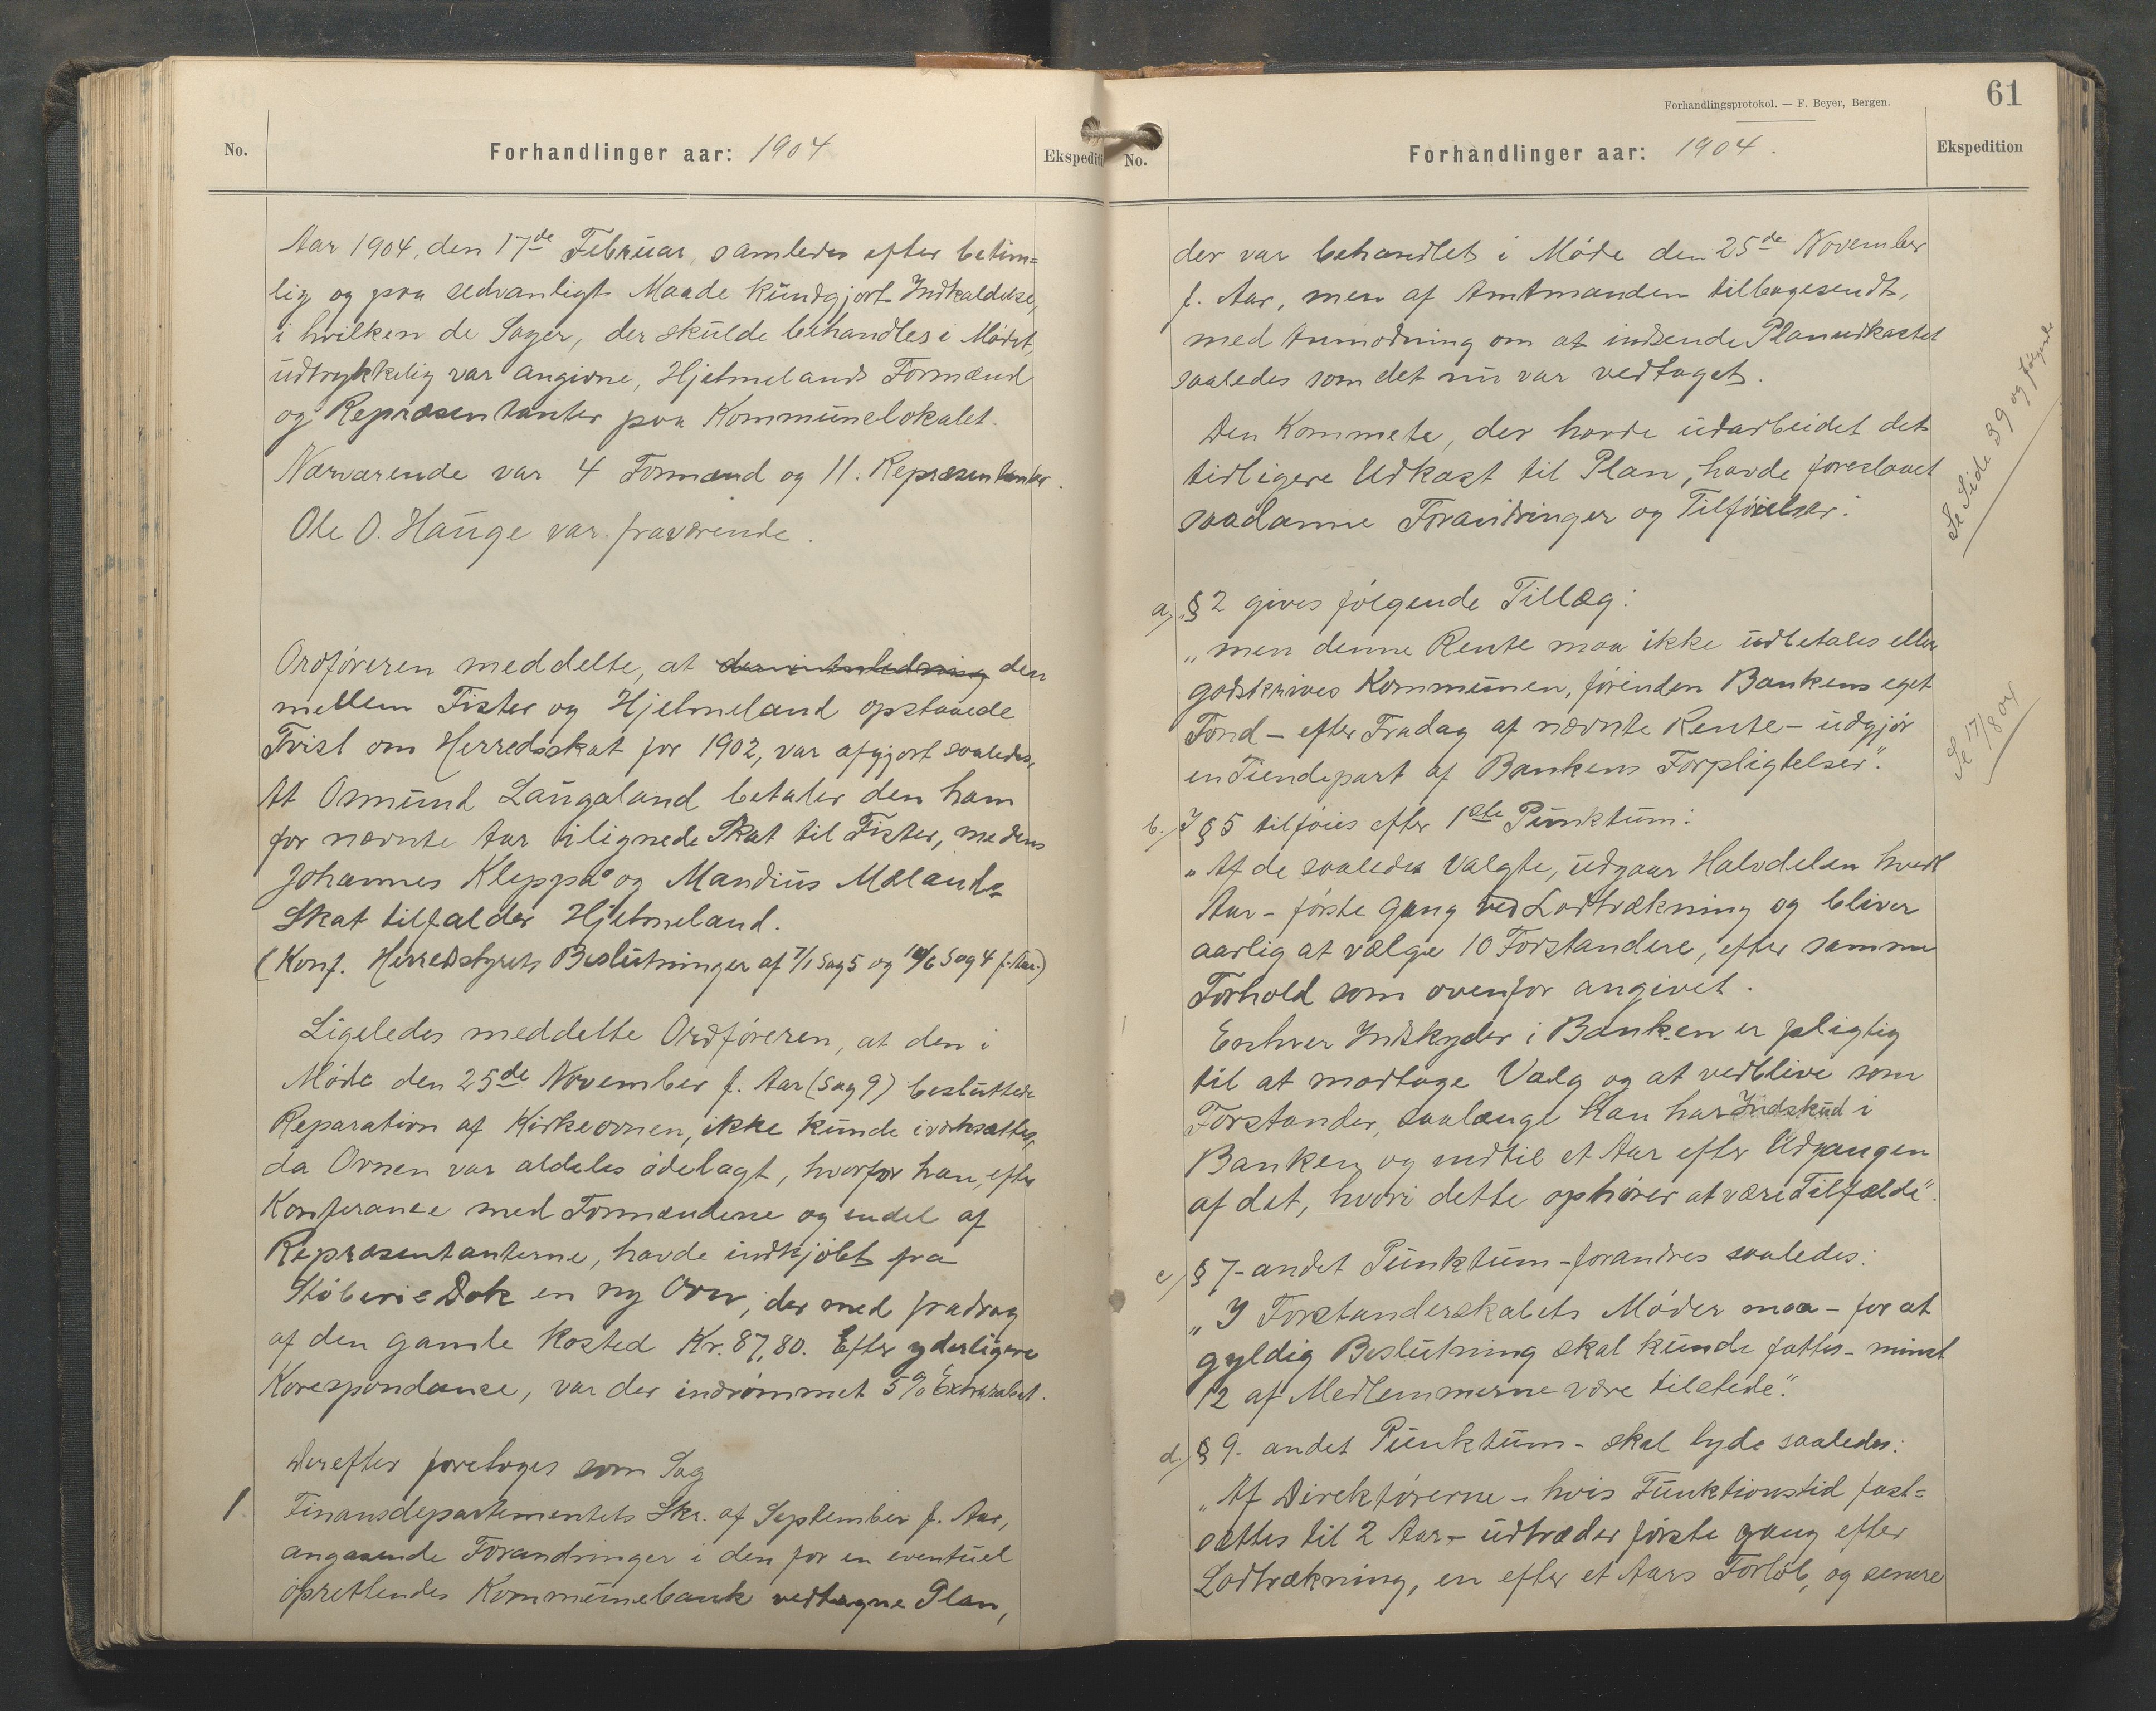 No.
Forhandlinger aar: 1904
Ekspediti
Aar 1904, den 17de Februar, samledes efter betim=
lig og paa sedvanligt Maade kundgjort Indkaldelse,
i hvilken de Sager, der skulde behandles i Mødet,
udtrykkelig var angivne, Hjelmelands Formænd
og Repræsentanter paa Kommunelokalet.
Nærværende var 4 Formænd og 11. Repræsentanter.
Ole O. Hauge var fraværende.
Ordføreren meddelte, at den
mellem Fister og Hjelmeland opstaaede
Tvist om Herredsskat for 1902, var afgjort saaledes,
At Osmund Laugaland betaler den ham
for nævnte Aar ilignede Skat til Fister, medens
Johannes Kleppa og Mandius Mælands
Skat tilfalder Hjelmeland.
(Konf. Herredstyrets Beslutninger af 7/1 Sag 5 og 10/6 Sag 4 f. Aar.)
Ligeledes meddelte Ordføreren, at den i
Møde den 25de November f. Aar (Sag 9) besluttede
Reparation af Kirkeovnen, ikke kunde iværksættes,
da Ovnen var aldeles ødelagt, hvorfor han, efter
Konferance med Formændene og endel af
Repræsentanterne, havde indkjøbt fra
Støberi & Dok en ny Ovn, der med fradrag
af den gamle kosted Kr. 87,80. Efter yderligere
Korespondance, var der indrømmet 5% Extrarabat.
Derefter foretoges som Sag
1. Finansdepartementets Skr. af September f. Aar,
angaaende Forandringer i den for en eventuel
oprettendes Kommunebank vedtagne Plan,
Forhandlingsprotokol. — F. Beyer, Bergen.
61
No.
Forhandlinger aar: 1904.
Ekspedition
der var behandlet i Møde den 25de November
f. Aar, men af Amtmanden tilbagesendt,
med Anmodning om at indsende Planudkastet
saaledes som det nu var vedtaget.
Den Kommete, der havde udarbeidet det
tidligere Udkast til Plan, havde foreslaaet
saadanne Forandringer og Tilføielser:
Se Side 39 og følgende
a) „§ 2 gives følgende Tillæg:
„men denne Rente maa ikke udbetales eller
godskrives Kommunen, førinden Bankens eget
Fond – efter Fradag af nævnte Rente – udgjør
en Tiendepart af Bankens Forpligtelser“.
Se 17/8 04
b.) I § 5 tilføies efter 1ste Punktum:
„Af de saaledes Valgte, udgaar Halvdelen hvert
Aar – første Gang ved Lodtrækning og bliver
aarlig at vælge 10 Forstandere, efter samme
Forhold som ovenfor angivet.
Enhver Indskyder i Banken er pligtig
til at modtage Valg og at vedblive som
Forstander, saalænge han har Indskud i
Banken og indtil et Aar efter Udgangen
af det, hvori dette ophører at være Tilfælde“.
c) § 7 – andet Punktum – forandres saaledes:
„I Forstanderskabets Møder maa – for at
gyldig Beslutning skal kunde fattes – minst
12 af Medlemmerne være tilstede“.
d.) § 9. andet Punktum – skal lyde saaledes:
„Af Direktørerne – hvis Funktionstid fast=
sættes til 2 Aar – udtræder første gang efter
Lodtrækning, en efter et Aars Forløb, og senere